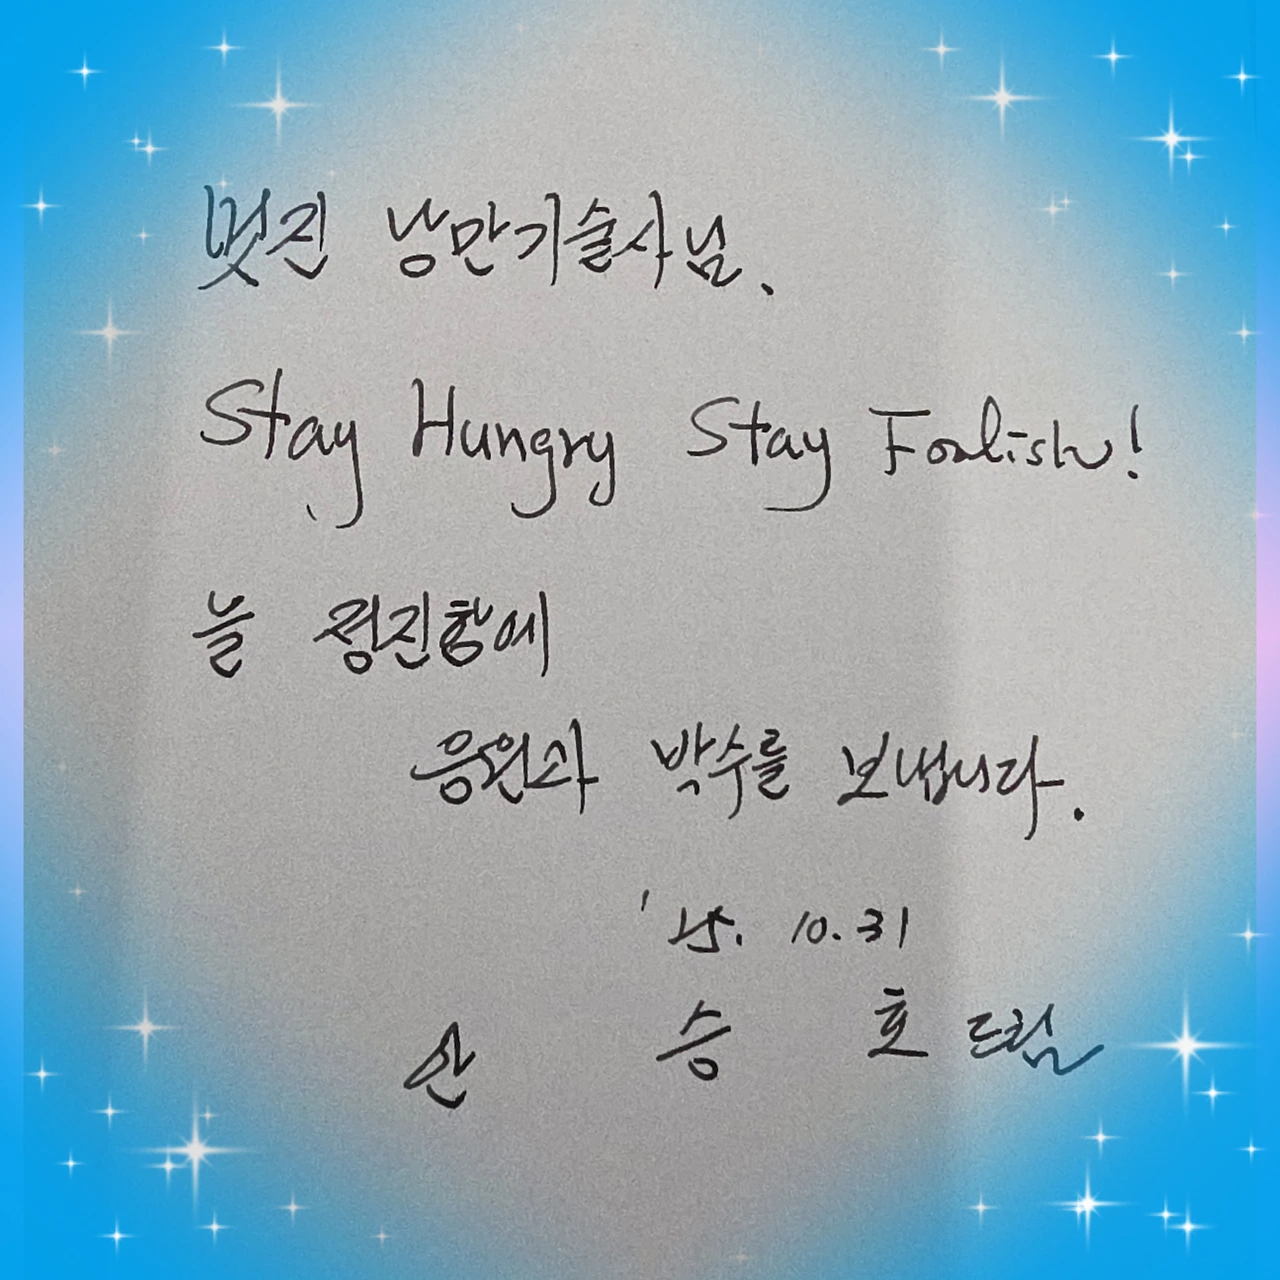 멋진 낭만기술사님.
Stay Hungry Stay Foolish!
늘 정진함에
응원과 박수를 보냅니다.
'25. 10. 31
승 호 드림